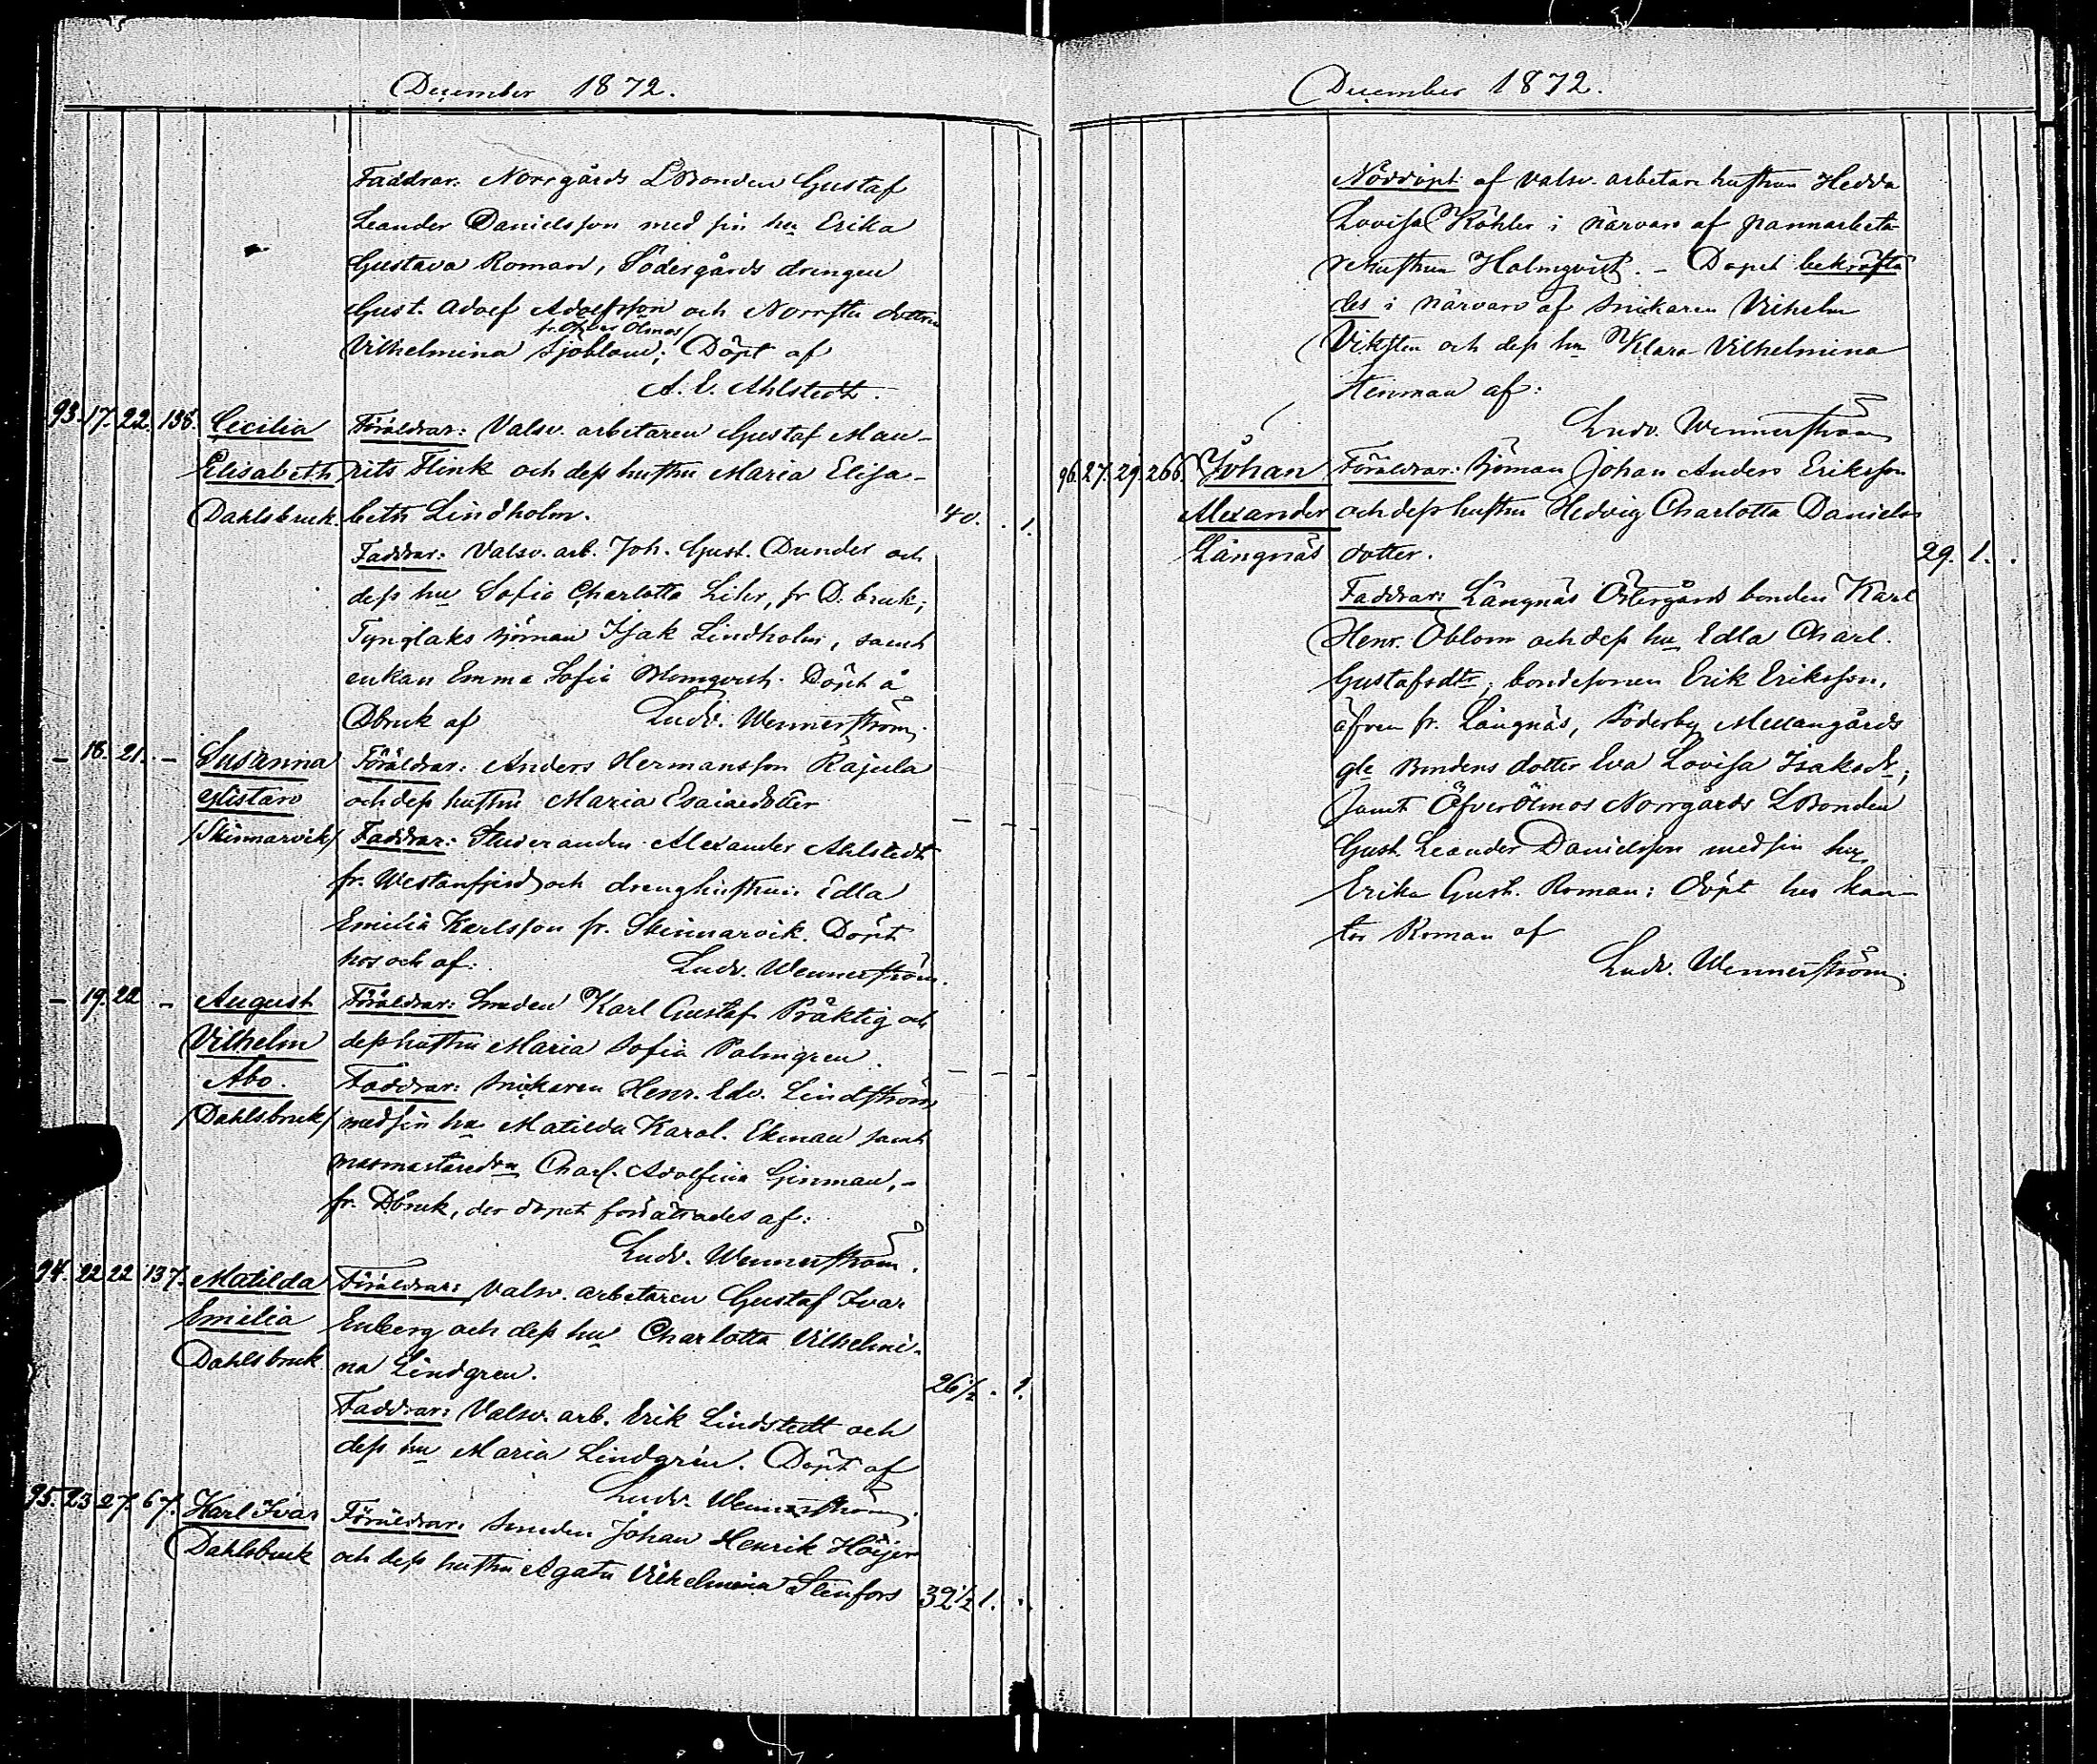 December 1872.
Faddrar: Norrgårds LBonden Gustaf
Leander Danielsson med sin hu Erika
Gustava Roman, Södergårds drengen
Gust. Adolf Adolfsson och Norrstu dottren
fr. Öfver Ölmos/
Vilhelmina Sjöblom; Döpt af
A. E. Ahlstedt.
93. 17. 22. 138. Cecilia Föräldrar: Valsv. arbetaren Gustaf Mau-
Elisabeth rits Flink och dess hustru Maria Elisa-
Dahlsbruk. beth Lindholm. 40. . 1.
Faddrar: Valsv. arb. Joh. Gust. Dunder och
dess hu Sofia Charlotta Lihr, fr D. bruk;
Tynglaks sjöman Isak Lindholm, samt
enkan Emma Sofia Blomqvist. Döpt å
Dbruk af Ludv. Wennerström.
- 18. 21. - Susanna Föräldrar: Anders Hermansson Rajula
och dess hustru Maria Esaiaedotter - - -
/Skinnarvik/ Faddrar: Studeranden Alexander Ahlstedt
fr. Westanfjerd och drenghustrun Edla
Emilia Karlsson fr. Skinnarvik. Döpt
hos och af: Ludv. Wennerström.
- 19. 22 - August Föräldrar: Smeden Karl Gustaf Präktig och
Vilhelm dess hustru Maria Sofia Palmgren. - - -
Åbo. Faddrar: Snickaren Henr. Edv. Lindström
/Dahlsbruk/ med sin hu Matilda Karol. Ekman samt
masmästaredtn Charl. Adolfina Ginman,-
fr. Dbruk, der dopet förrättades af:
Ludv. Wennerström.
94. 22 22 137. Matilda Föräldrar: Valsv. arbetaren Gustaf Ivar
Emilia Enberg och dess hu Charlotta Vilhelmi-
Dahlsbruk na Lindgren. 26½ . 1.
Faddrar: Valsv. arb. Erik Lindstedt och
dess hu Maria Lindgrén. Döpt af
Ludv. Wennerström.
95. 23 27. 67. Karl Ivar Föräldrar: Smeden Johan Henrik Höijer
Dahlsbruk och dess hustru Agata Vilhelmina Stenfors 32½ 1. .
December 1872.
Nöddöpt af valsv. arbetare hustrun Hedda
Lovisa Köhler i närvaro af pannarbeta-
rehustrun Holmqvist. - Dopet bekräfta
des i närvaro af snickaren Vilhelm
Viksten och dess hu Klara Vilhelmina
Stenman af:
Ludv. Wennerström
96. 27. 29. 266. Johan Föräldrar: Sjöman Johan Anders Eriksson
Alexander och dess hustru Hedvig Charlotta Daniels
Långnäs dotter. 29. 1. .
Faddrar: Långnäs Östergårds bonden Karl
Henr. Öblom och dess hu Edla Charl.
Gustafsdtr; bondesonen Erik Eriksson,
äfven fr. Långnäs, Söderby Mellangårds
gle Bondens dotter Eva Lovisa Isaksdr;
samt Öfver Ölmos Norrgårds LBonden
Gust. Leander Danielsson med sin hu
Erika Gust. Roman; Döpt hos kan-
tor Roman af
Ludv. Wennerström.